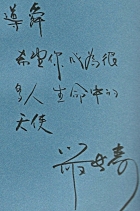 導舜
希望你成為很
多人生命中的
天使